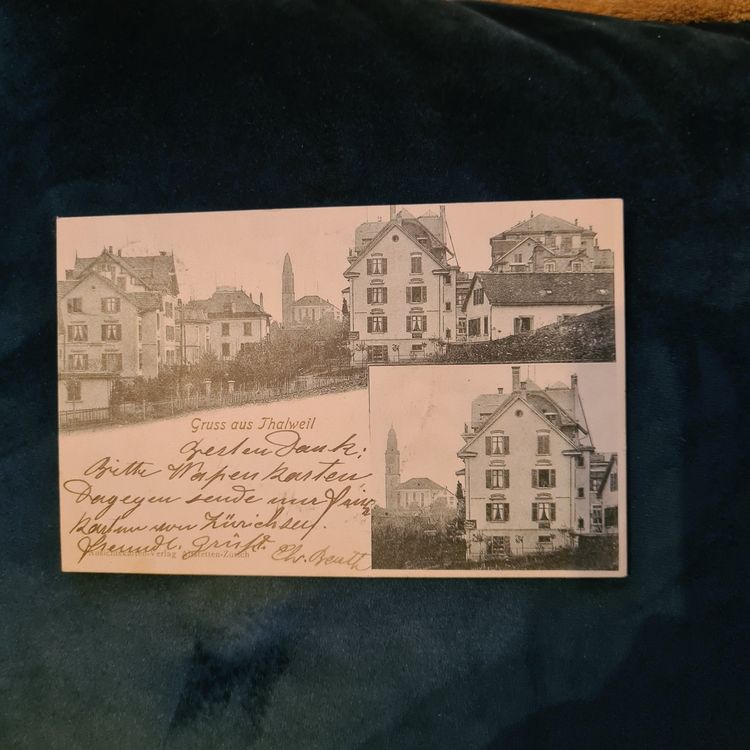 Gruss aus Thalweil
Besten Dank;
Bitte Wapen karten
Dagegen sende nur
karten von Zürichsee.
freundl. Grüsst.
Ansichtskarten-Verlag Altstetten-Zürich